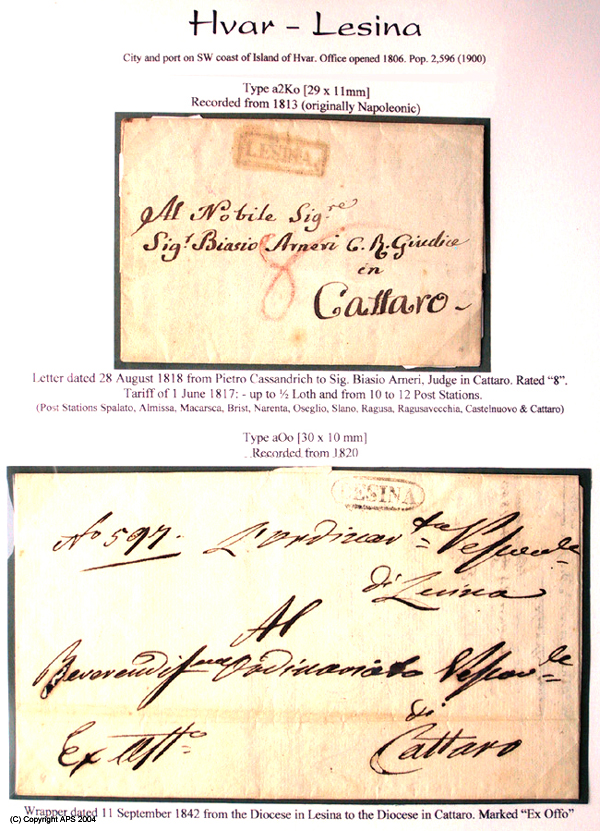 Hvar - Lesina
City and port on SW coast of Island of Hvar. Office opened 1806. Pop. 2,596 (1900)
Type a2Ko [29 x 11mm]
Recorded from 1813 (originally Napoleonic)
LESINA
Al Nobile Sig.re
Sig.r Biasio Arneri C. R. Giudice
8
in
Cattaro
Letter dated 28 August 1818 from Pietro Cassandrich to Sig. Biasio Arneri, Judge in Cattaro. Rated “8”.
Tariff of 1 June 1817: - up to ½ Loth and from 10 to 12 Post Stations.
(Post Stations Spalato, Almissa, Macarsca, Brist, Narenta, Oseglio, Slano, Ragusa, Ragusavecchia, Castelnuovo & Cattaro)
Type aOo [30 x 10 mm]
Recorded from 1820
LESINA
No 597.
di Lesina
Al
di
Ex Offo
Cattaro
Wrapper dated 11 September 1842 from the Diocese in Lesina to the Diocese in Cattaro. Marked “Ex Offo”
(C) Copyright APS 2004